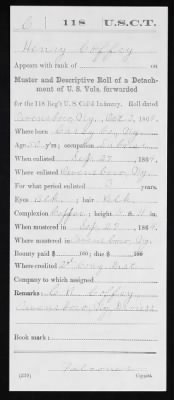 C | 118 U.S.C.T.
Henry Coffey
Appears with rank of
Muster and Descriptive Roll of a Detachment
ment of U. S. Vols. forwarded
for the 118 Reg't U. S. Col'd Infantry. Roll dated
Owensboro, Ky. Oct 3, 1864.
Where born Ky.
Age y'rs; occupation
When enlisted Sep. 27, 1864.
Where enlisted Owensboro, Ky.
For what period enlisted years.
Eyes Blk; hair Blk
Complexion Copper; height ft. in.
When mustered in Sep 29, 1864.
Where mustered in Owensboro, Ky.
Bounty paid $ 100; due $ 100
Where credited 2d Cong Dist
Company to which assigned
Remarks: Coffey
Owensboro, Ky
Book mark:
(339) Copyist.